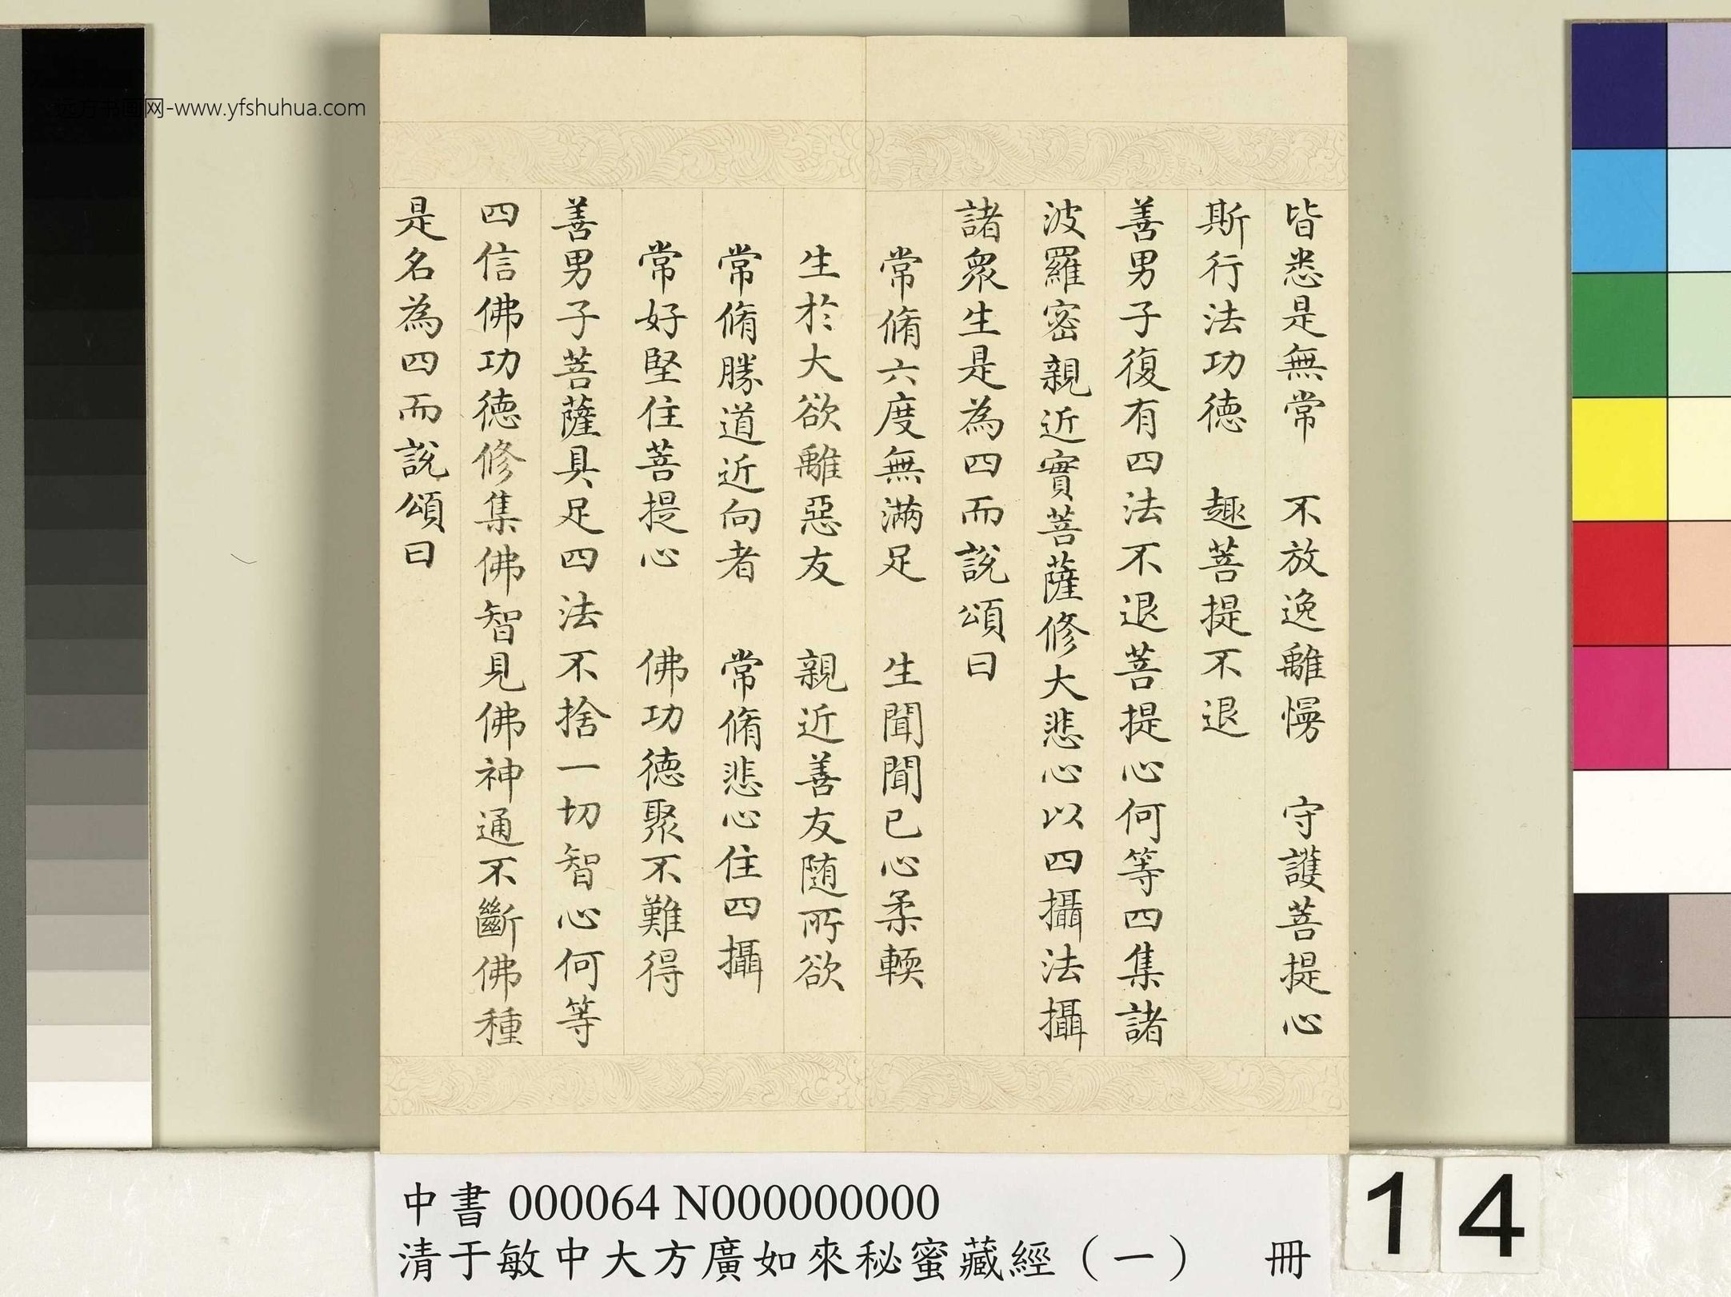 皆悉是無常　不放逸離慢　守護菩提心
斯行法功德　趣菩提不退
善男子復有四法不退菩提心何等四集諸
波羅密親近實菩薩修大悲心以四攝法攝
諸衆生是為四而說頌曰
常脩六度無滿足　生聞聞已心柔輭
生於大欲離惡友　親近善友随所欲
常脩勝道近向者　常脩悲心住四攝
常好堅住菩提心　佛功德聚不難得
善男子菩薩具足四法不捨一切智心何等
四信佛功德修集佛智見佛神通不斷佛種
是名為四而說頌曰
中書 000064 N000000000
清于敏中大方廣如來秘蜜藏經（一）　冊
14
书画网-www.yfshuhua.com